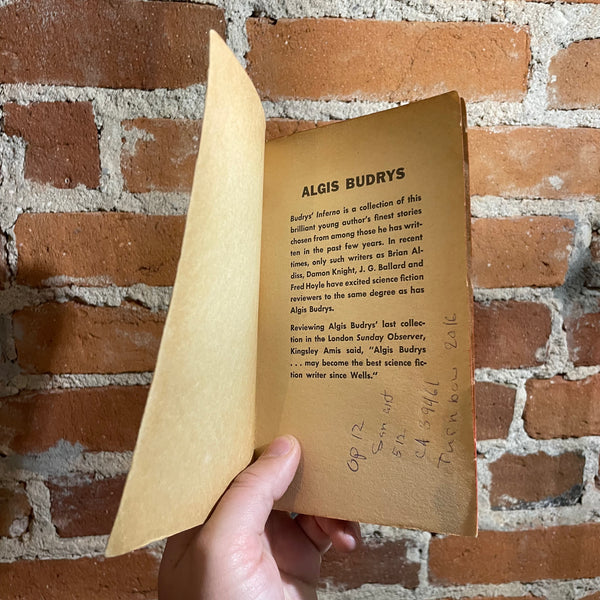 ALGIS BUDRYS
Budrys' Inferno is a collection of this
brilliant young author's finest stories
chosen from among those he has writ-
ten in the past few years. In recent
times, only such writers as Brian Al-
diss, Damon Knight, J. G. Ballard and
Fred Hoyle have excited science fiction
reviewers to the same degree as has
Algis Budrys.
Reviewing Algis Budrys' last collec-
tion in the London Sunday Observer,
Kingsley Amis said, "Algis Budrys
. . . may become the best science fic-
tion writer since Wells."
OP 12
512
CA 39461